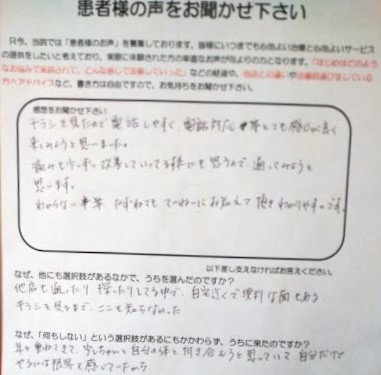 患者様の声をお聞かせ下さい
只今、当院では「患者様のお声」を募集しております。皆様にいつまでも心地よい治療と心地よいサービス
の提供をしたいと考えており、実際に体験された方の率直なお声が何よりのものとなります。「はじめはどのよう
なお悩みで来院されて、どんな感じで改善していった」などの経過や、他店との違いや治療院選びをしている
方へアドバイスなど、書き方は自由ですので、お気持ちをお聞かせ下さい。
感想をお聞かせ下さい
チラシを見たので電話しやすく、電話対応 とても感じが良く
来てみようと思いました。
痛みも少しずつ改善していってる様にも思うので、通ってみようと
思います。
わからない事等 たずねても ていねいにお答えて頂きわかりやすいです。
以下差し支えなければお答えください。
なぜ、他にも選択肢があるなかで、うちを選んだのですか?
他店も通ったり 探したりしてる中で、自宅近くで便利な面もある
チラシを見るまで、ここを知らなかった
なぜ、「何もしない」という選択肢があるにもかかわらず、うちに来たのですか?
年を重ねてきて、少しちゃんと自分の体と付き合おうと思っていて、自分だけで
やるには限界を感じていたから